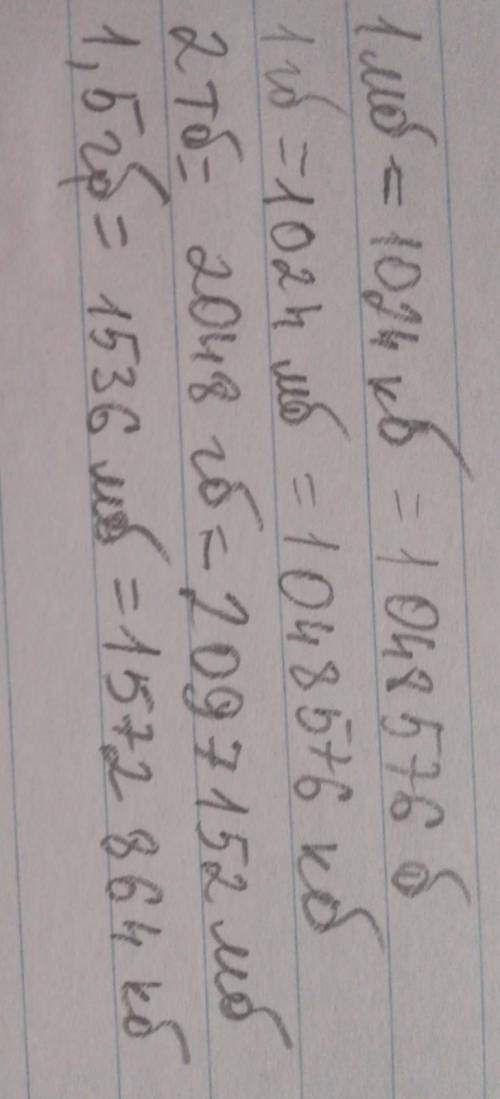 1 мб = 1024 кб = 1048576 б
1 гб = 1024 мб = 1048576 кб
2 тб = 2048 гб = 2097152 мб
1,5 гб = 1536 мб = 1572 864 кб